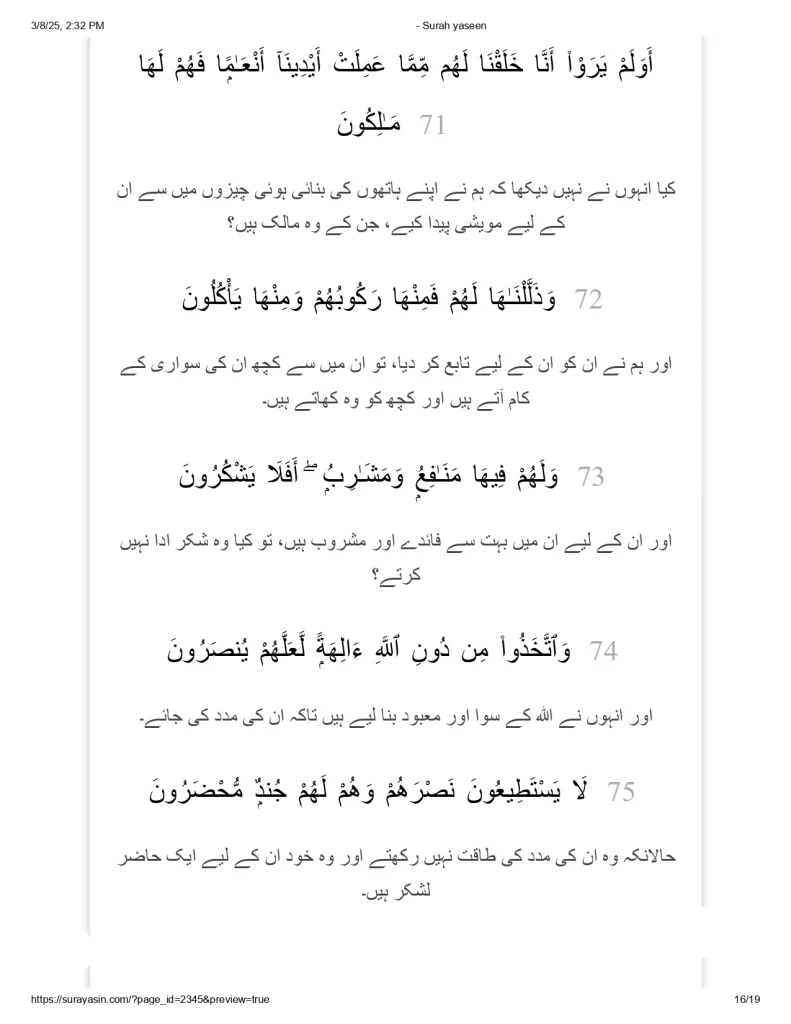 3/8/25, 2:32 PM - Surah yaseen
أَوَلَمْ يَرَوْا۟ أَنَّا خَلَقْنَا لَهُم مِّمَّا عَمِلَتْ أَيْدِينَآ أَنْعَـٰمًۭا فَهُمْ لَهَا
مَـٰلِكُونَ 71
کیا انہوں نے نہیں دیکھا کہ ہم نے اپنے ہاتھوں کی بنائی ہوئی چیزوں میں سے ان
کے لیے مویشی پیدا کیے، جن کے وہ مالک ہیں؟
72 وَذَلَّلْنَـٰهَا لَهُمْ فَمِنْهَا رَكُوبُهُمْ وَمِنْهَا يَأْكُلُونَ
اور ہم نے ان کو ان کے لیے تابع کر دیا، تو ان میں سے کچھ ان کی سواری کے
کام آتے ہیں اور کچھ کو وہ کھاتے ہیں۔
73 وَلَهُمْ فِيهَا مَنَـٰفِعُ وَمَشَـٰرِبُ ۖ أَفَلَا يَشْكُرُونَ
اور ان کے لیے ان میں بہت سے فائدے اور مشروب ہیں، تو کیا وہ شکر ادا نہیں
کرتے؟
74 وَٱتَّخَذُوا۟ مِن دُونِ ٱللَّهِ ءَالِهَةًۭ لَّعَلَّهُمْ يُنصَرُونَ
اور انہوں نے اللہ کے سوا اور معبود بنا لیے ہیں تاکہ ان کی مدد کی جائے۔
75 لَا يَسْتَطِيعُونَ نَصْرَهُمْ وَهُمْ لَهُمْ جُندٌۭ مُّحْضَرُونَ
حالانکہ وہ ان کی مدد کی طاقت نہیں رکھتے اور وہ خود ان کے لیے ایک حاضر
لشکر ہیں۔
https://surayasin.com/?page_id=2345&preview=true 16/19